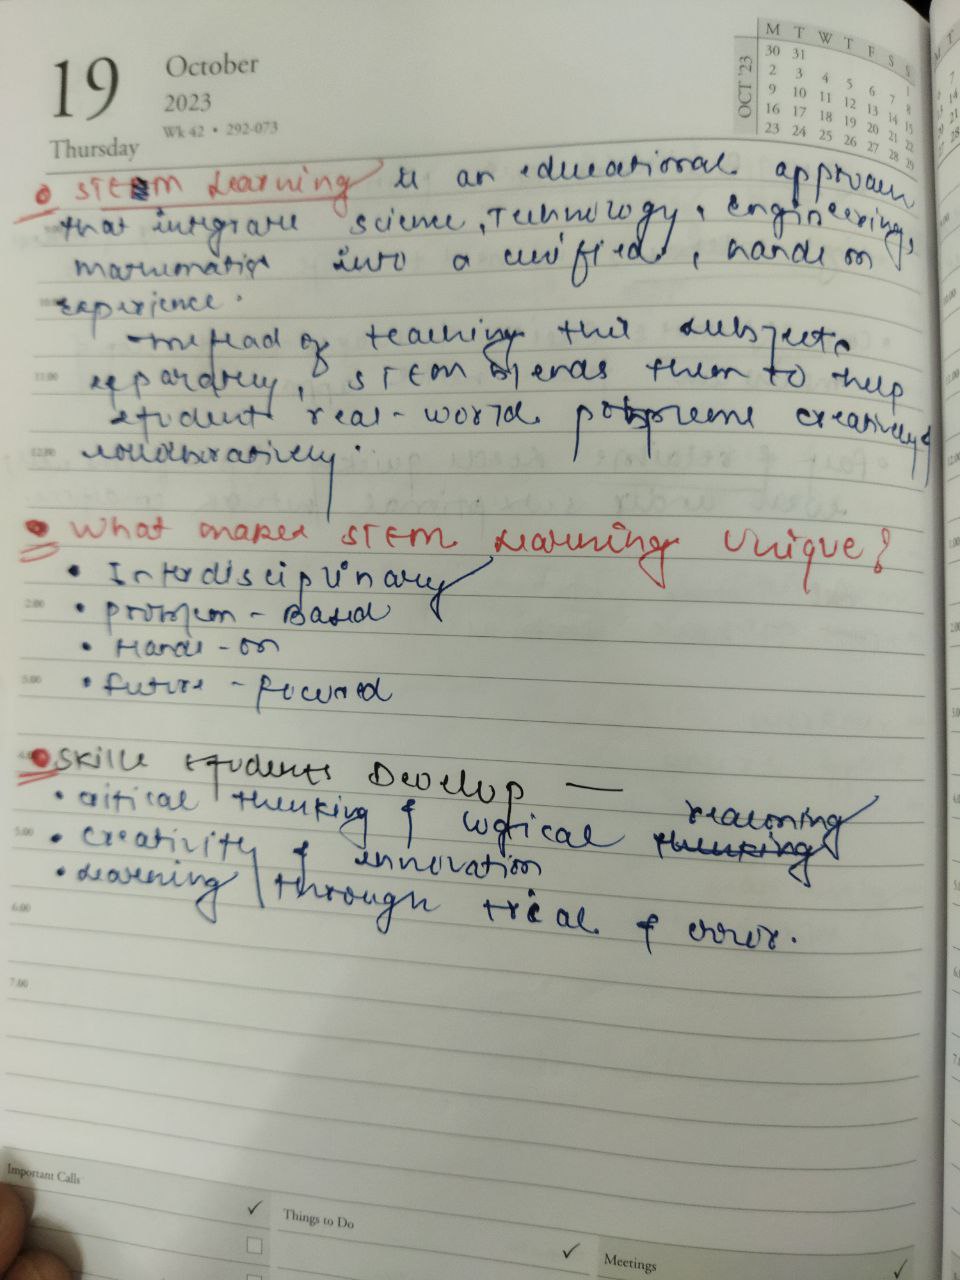 19
October
2023
Wk 42 • 292-073
Thursday
OCT '23
M T W T F S S
30 31 1
2 3 4 5 6 7 8
9 10 11 12 13 14 15
16 17 18 19 20 21 22
23 24 25 26 27 28 29
STEM Learning is an educational approach
that integrate science, Technology, engineering,
mathematics into a unified, hands on
experience.
- Instead of teaching this subjects
separately, STEM blends them to help
student real-world problems creatively &
collaboratively.
• What makes STEM Learning Unique?
• Interdisciplinary
• Problem-Based
• Hands-on
• future-focused
• Skills students Develop —
• critical thinking & logical thinking reasoning
• creativity & innovation
• Learning through trial & error.
2.00
3.00
5.00
6.00
7.00
Important Calls
Things to Do
Meetings